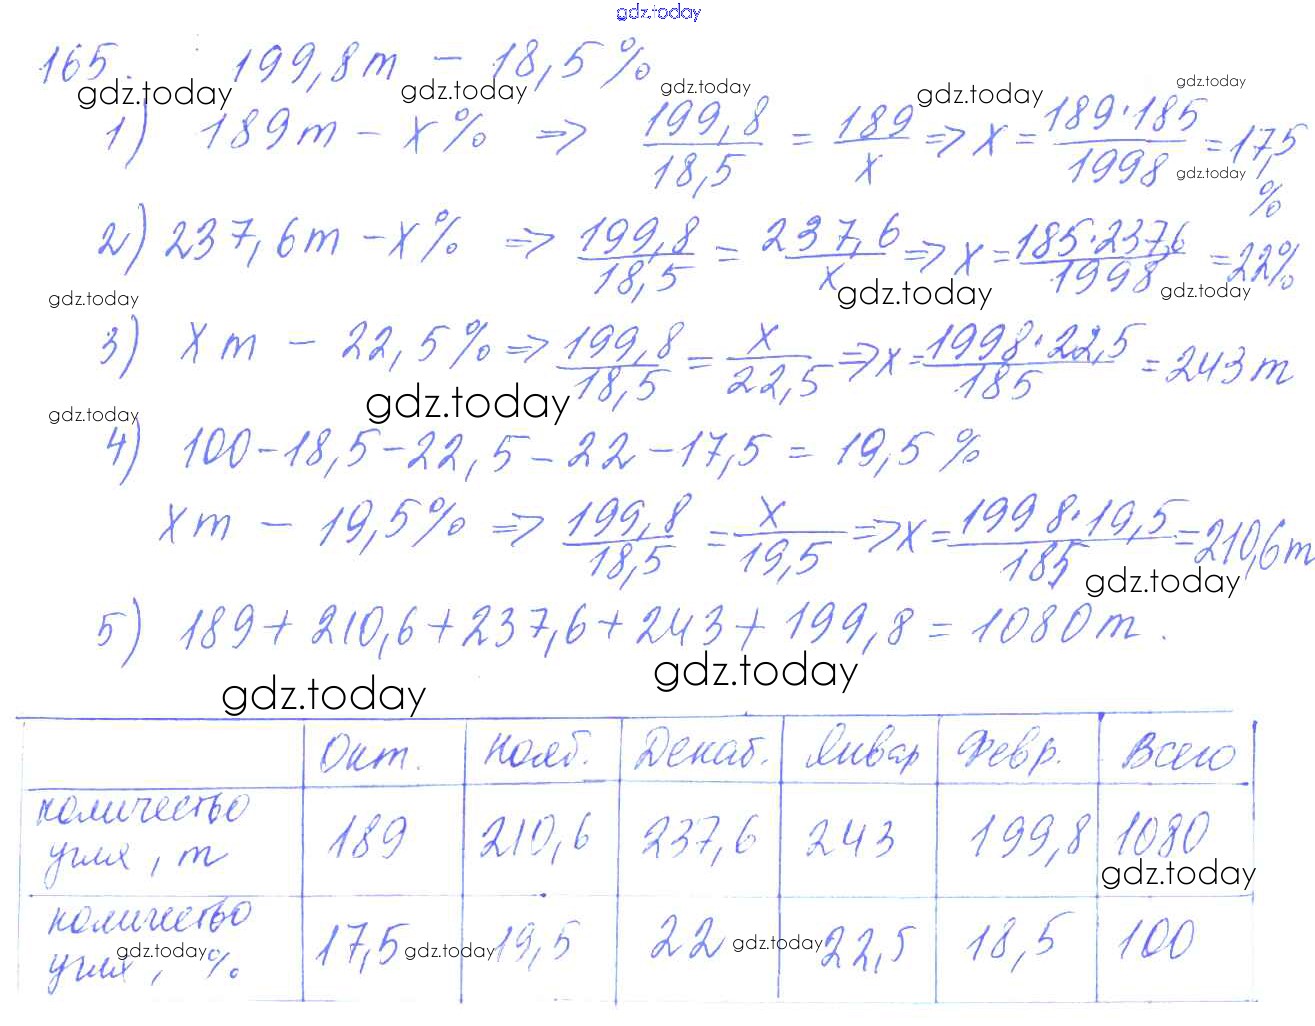 gdz.today
165. 199,8 т – 18,5 %
gdz.today gdz.today gdz.today gdz.today gdz.today
1) 189 т – x % => 199,8/18,5 = 189/x => x = 189·185/1998 = 17,5 %
gdz.today
2) 237,6 т – x % => 199,8/18,5 = 237,6/x => x = 185·237,6/1998 = 22 %
gdz.today gdz.today gdz.today
3) x т – 22,5 % => 199,8/18,5 = x/22,5 => x = 1998·22,5/185 = 243 т
gdz.today gdz.today
4) 100 – 18,5 – 22,5 – 22 – 17,5 = 19,5 %
x т – 19,5 % => 199,8/18,5 = x/19,5 => x = 1998·19,5/185 = 210,6 т
gdz.today
5) 189 + 210,6 + 237,6 + 243 + 199,8 = 1080 т.
gdz.today gdz.today
Окт. Нояб. Декаб. Январ Февр. Всего
количество
угля, т 189 210,6 237,6 243 199,8 1080
gdz.today
количество
угля, % 17,5 19,5 22 22,5 18,5 100
gdz.today gdz.today gdz.today